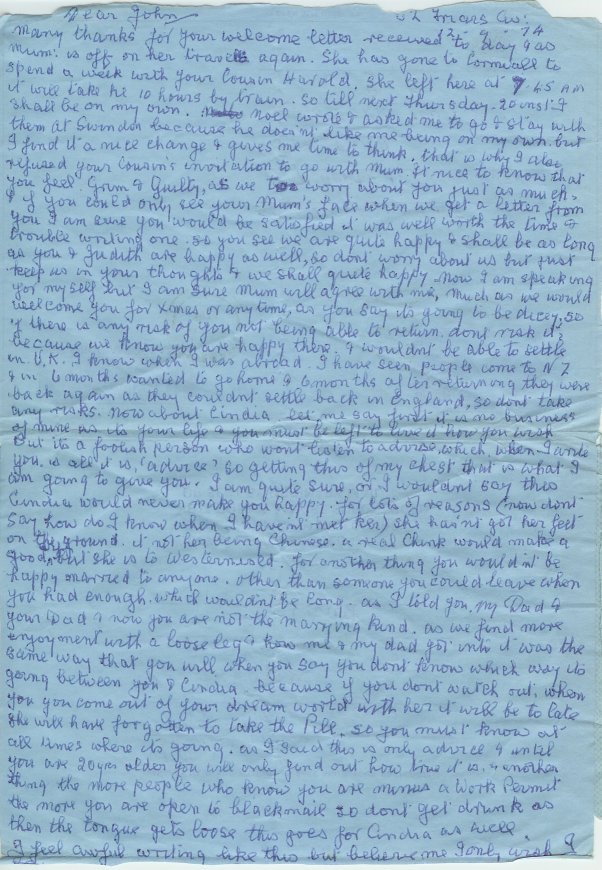 Dear John
St Friars Cv:
12. 9. 74
Many thanks for your welcome letter received to, day & as
mum: is off on her travels again. She has gone to Cornwall to
spend a week with your Cousin Harold. she left here at 7 45 AM
it will take he 10 hours by train. so till next Thursday. 20 inst I
shall be on my own. Noel wrote & asked me to go & stay with
them at Swindon because he does'nt like me being on my own. but
I find it a nice change & gives me time to think. that is why I also
refused your Cousin's invitation to go with Mum. it nice to know that
you feel Grim & Guilty, as we worry about you just as much.
& if you could only see your Mum's face when we get a letter from
you I am sure you would be satisfied it was well worth the time &
trouble writing one. so you see we are quite happy & shall be as long
as you & Judith are happy as well, so dont worry about us but just
keep us in your thoughts & we shall quite happy. now I am speaking
for my self but I am sure Mum will agree with me, much as we would
welcome you for xmas or any time, as you say its going to be dicey, so
if there is any risk of you not being able to return. dont risk it,
because we know you are happy there. & would'nt be able to settle
in U.K. I know when I was abroad. I have seen people come to N Z
& in 6 months wanted to go home & 6 months after returning they were
back again as they couldnt settle back in England, so dont take
any risks. now about Cindia let me say first it is no business
of mine as its your life & you must be left to live it how you wish
But its a foolish person who wont listen to advise, which, when I write
you, is all it is, 'advice', so getting this of my chest that is what I
am going to give you. I am quite sure, or I wouldnt say this
Cindia would never make you happy. for lots of reasons (now dont
say how do I know when I haven't met her) she has'nt got her feet
on the ground. it not her being Chinese. a real Chink would make a
good, but she is to westernused. for another thing you would'nt be
happy married to anyone. other than someone you could leave when
you had enough. which would'nt be long. as I told you, my Dad &
your Dad & now you are not the marrying kind. as we find more
enjoyment with a loose leg & how me & my dad got into it was the
same way that you will when you say you dont know which way its
going between you & Cindia because if you dont watch out, when
you come out of your dream world with her it will be to late
she will have forgotten to take the Pill. so you must know at
all times where its going. as I said this is only advice & until
you are 20 yrs older you will only find out how true it is. & another
thing the more people who know you are minus a Work Permit
the more you are open to blackmail so dont get drunk as
then the tongue gets loose this goes for Cindia as well.
I feel awful writing like this but believe me I only wish I